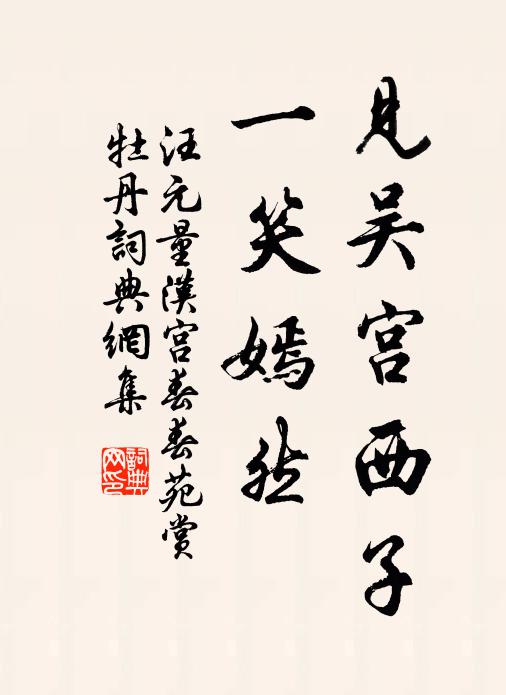 見吴宫西子
一笑嫣然
汪元量漢宫春春苑賞
牡丹詞典網集
詞典
网印